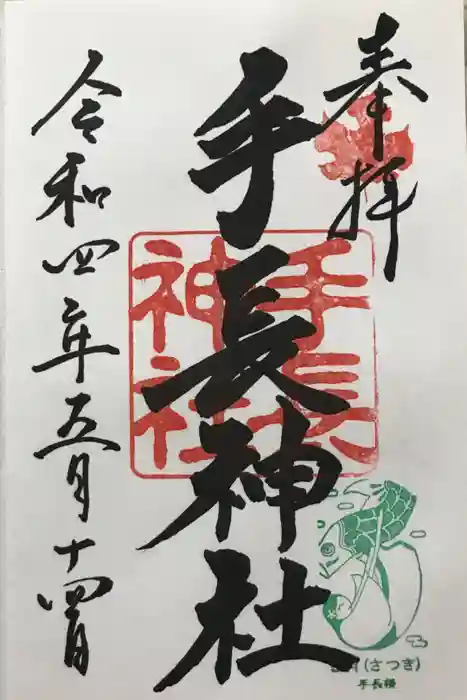 奉拝
手長神社
手長神社
令和四年五月十四日
(さつき)
手長様